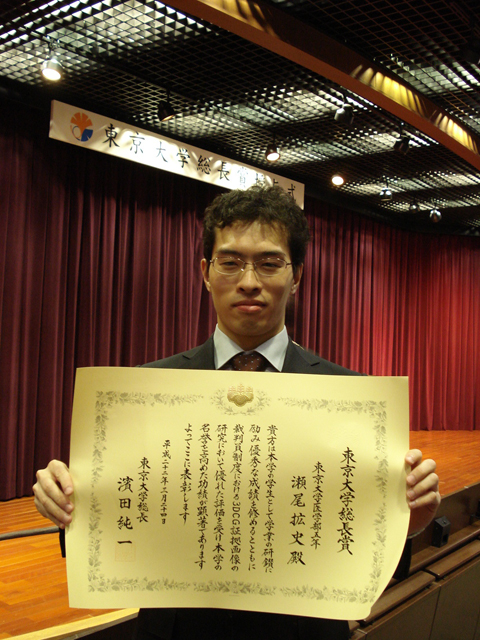 東京大学総長賞授与式
東京大学総長賞
東京大学医学部五年
瀬尾拡史殿
貴方は本学の学生として学業の研鑽に
励み優秀な成績を修めるとともに
裁判員制度における3DCG証拠画像の
研究において優れた評価を受け本学の
名誉を高めた功績が顕著であります
よってここに表彰します
平成二十二年三月二十四日
東京大学総長
濱田純一